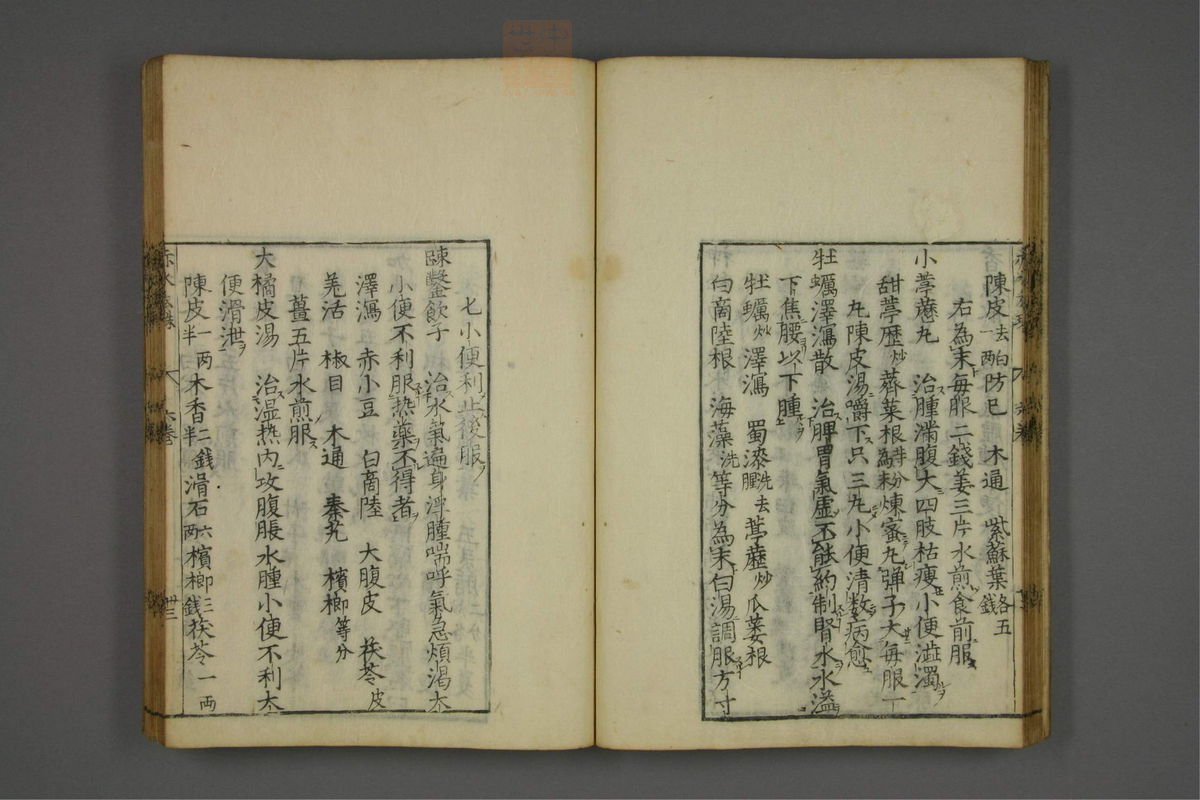 陳皮去白一兩防已 木通 紫蘇葉各五錢
右為末每服二錢姜三片水煎食前服
小葶藶丸 治腫滿腹大四肢枯瘦小便澁濁
甜葶歷炒蓽菜根等分為粉煉蜜丸弾子大每服一
丸陳皮湯嚼下只三丸小便清数病愈
牡蠣澤瀉散 治脾胃氣虚不能約制腎水水溢
下焦腰以下腫
牡蠣炒 澤瀉 蜀漆洗去腥 葶藶炒 瓜蔞根
白商陸根 海藻洗 等分為末白湯調服方寸
七小便利止後服
踈鑿飲子 治水氣遍身浮腫喘呼氣急煩渴大
小便不利服熱藥不得者
澤瀉 赤小豆 白商陸 大腹皮 茯苓皮
羌活 椒目 木通 秦艽 檳榔等分
薑五片水煎服
大橘皮湯 治湿熱内攻腹脹水腫小便不利大
便滑泄
陳皮一兩半 木香二錢半 滑石六兩 檳榔三錢 茯苓一兩
六卷